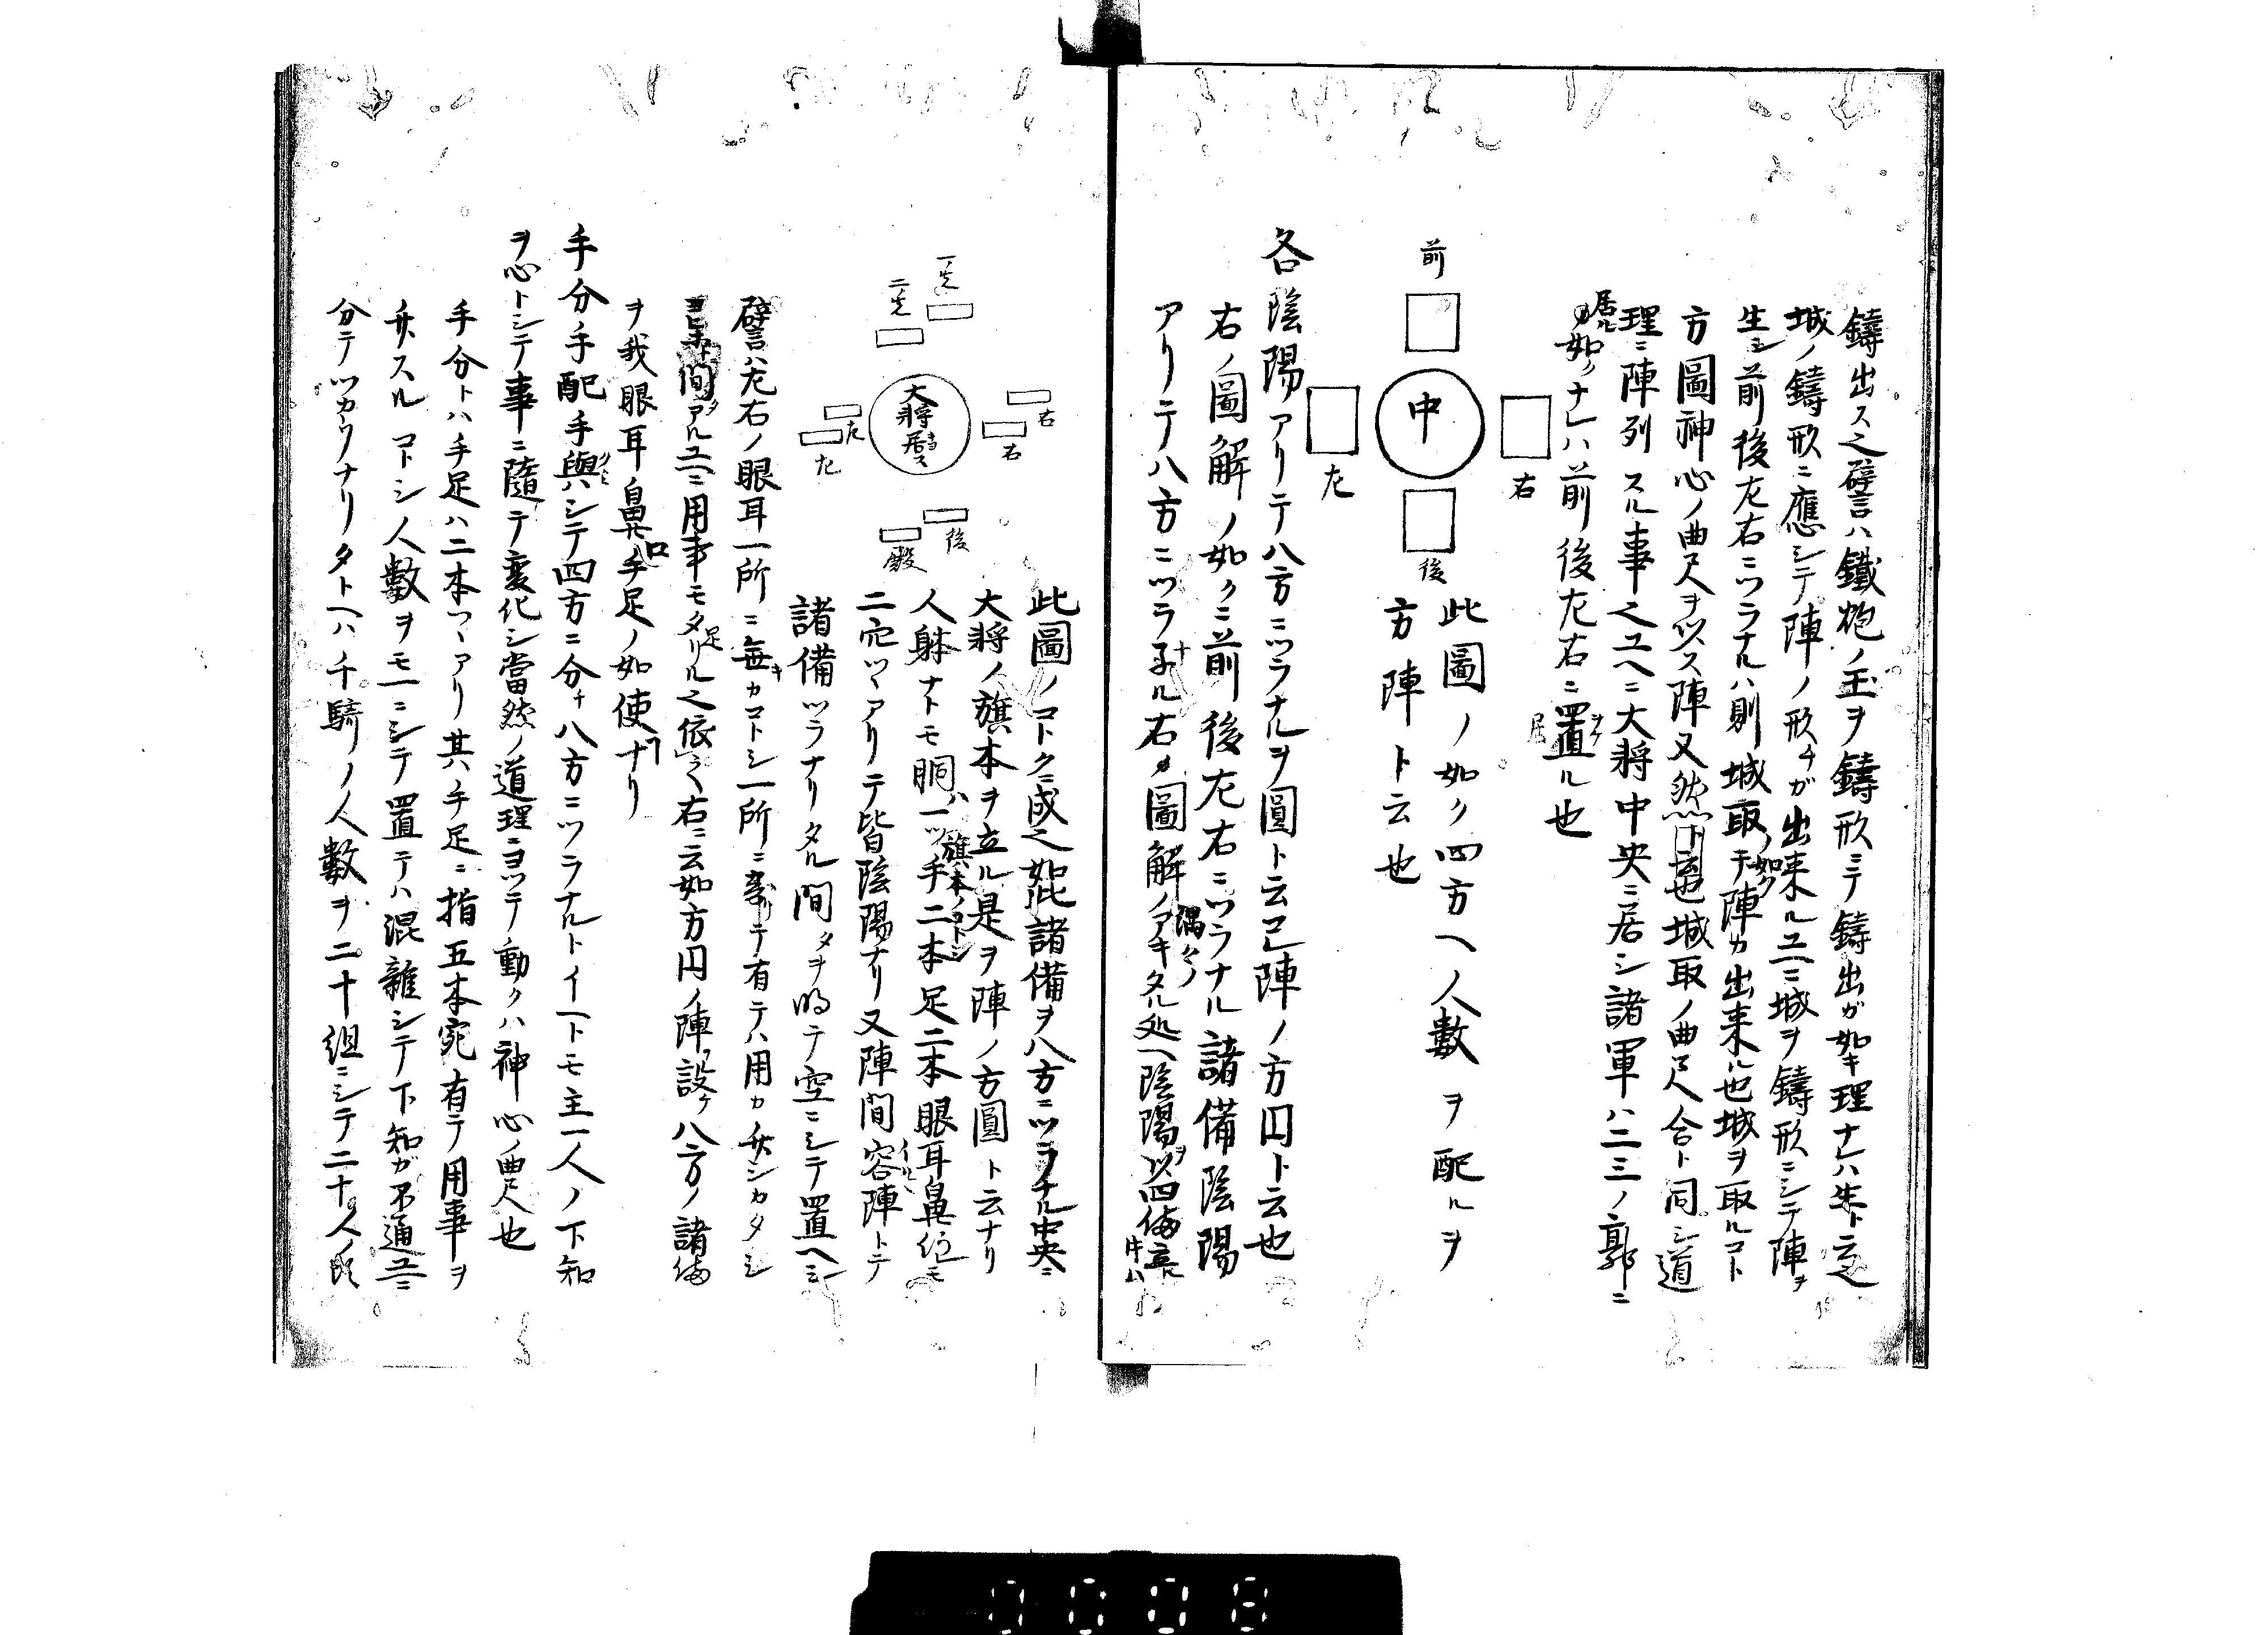 鑄出ス之譬言ハ鐵炮ノ玉ヲ鑄形ニテ鑄出ガ如キ理ナレハ朱ト云之
城ノ鑄形ニ應シテ陣ノ形チガ出来ルユヘニ城ヲ鑄形ニシテ陣ヲ
生シ前後左右ニツラナルハ則城取ノ如クテ陣カ出来ル也城ヲ取ルコト
方圖神心ノ曲尺ヲ以ス陣又然ト云也城取ノ曲尺合ト同シ道
理ニ陣列スル事之ユヘニ大將中央ニ居シ諸軍ハ二三ノ郭ニ
居ル如クナレハ前後左右ニ置ル也
前
右
中
左
後
此圖ノ如ク四方ヘ人數ヲ配ルヲ
方陣ト云也
各陰陽アリテ八方ニツラナルヲ圓ト云已陣ノ方円ト云也
右ノ圖解ノ如クニ前後左右ニツラナル諸備陰陽
アリテハ方ニツラナル右ノ圖解ノアキタル処ヘ陰陽ヲ以四備
一先
二先
右
右
大將居ス
左
左
後
殿
此圖ノコトクニ成之如此諸備ヲ八方ニツラナル中央ニ
大將ノ旗本ヲ立ル是ヲ陣ノ方圓ト云ナリ
人躰ナトモ胴ハ一ツ旗本ノコトシ手二本足二本眼耳鼻何モ
二穴ツヽアリテ皆陰陽ナリ又陣間容陣トテ
諸備ツラナリタル間タヲ明テ空ニシテ置ヘシ
譬言ハ左右ノ眼耳一所ニ無キカコトシ一所ニ寄リテ有テハ用カ弁シカタシ
間タアルユヘニ用事モタリル之依之右ニ云如方円ノ陣ヲ設ケ八方ノ諸備
ヲ我眼耳鼻口手足ノ如使ナリ
手分手配手與ハシテ四方ニ分チ八方ニツラナルトイヘトモ主一人ノ下知
ヲ心トシテ事ニ隨テ変化シ當然ノ道理ニヨツテ動クハ神心ノ曲尺也
手分トハ手足ハ二本ツヽアリ其ノ手足ニ指五本宛有テ用事ヲ
弁スルコトシ人數ヲモ一ニシテ置テハ混雜シテ下知ガ不通ユヘニ
分テツカウナリタトヘハ千騎ノ人數ヲ二十組ニシテ二十人ノ